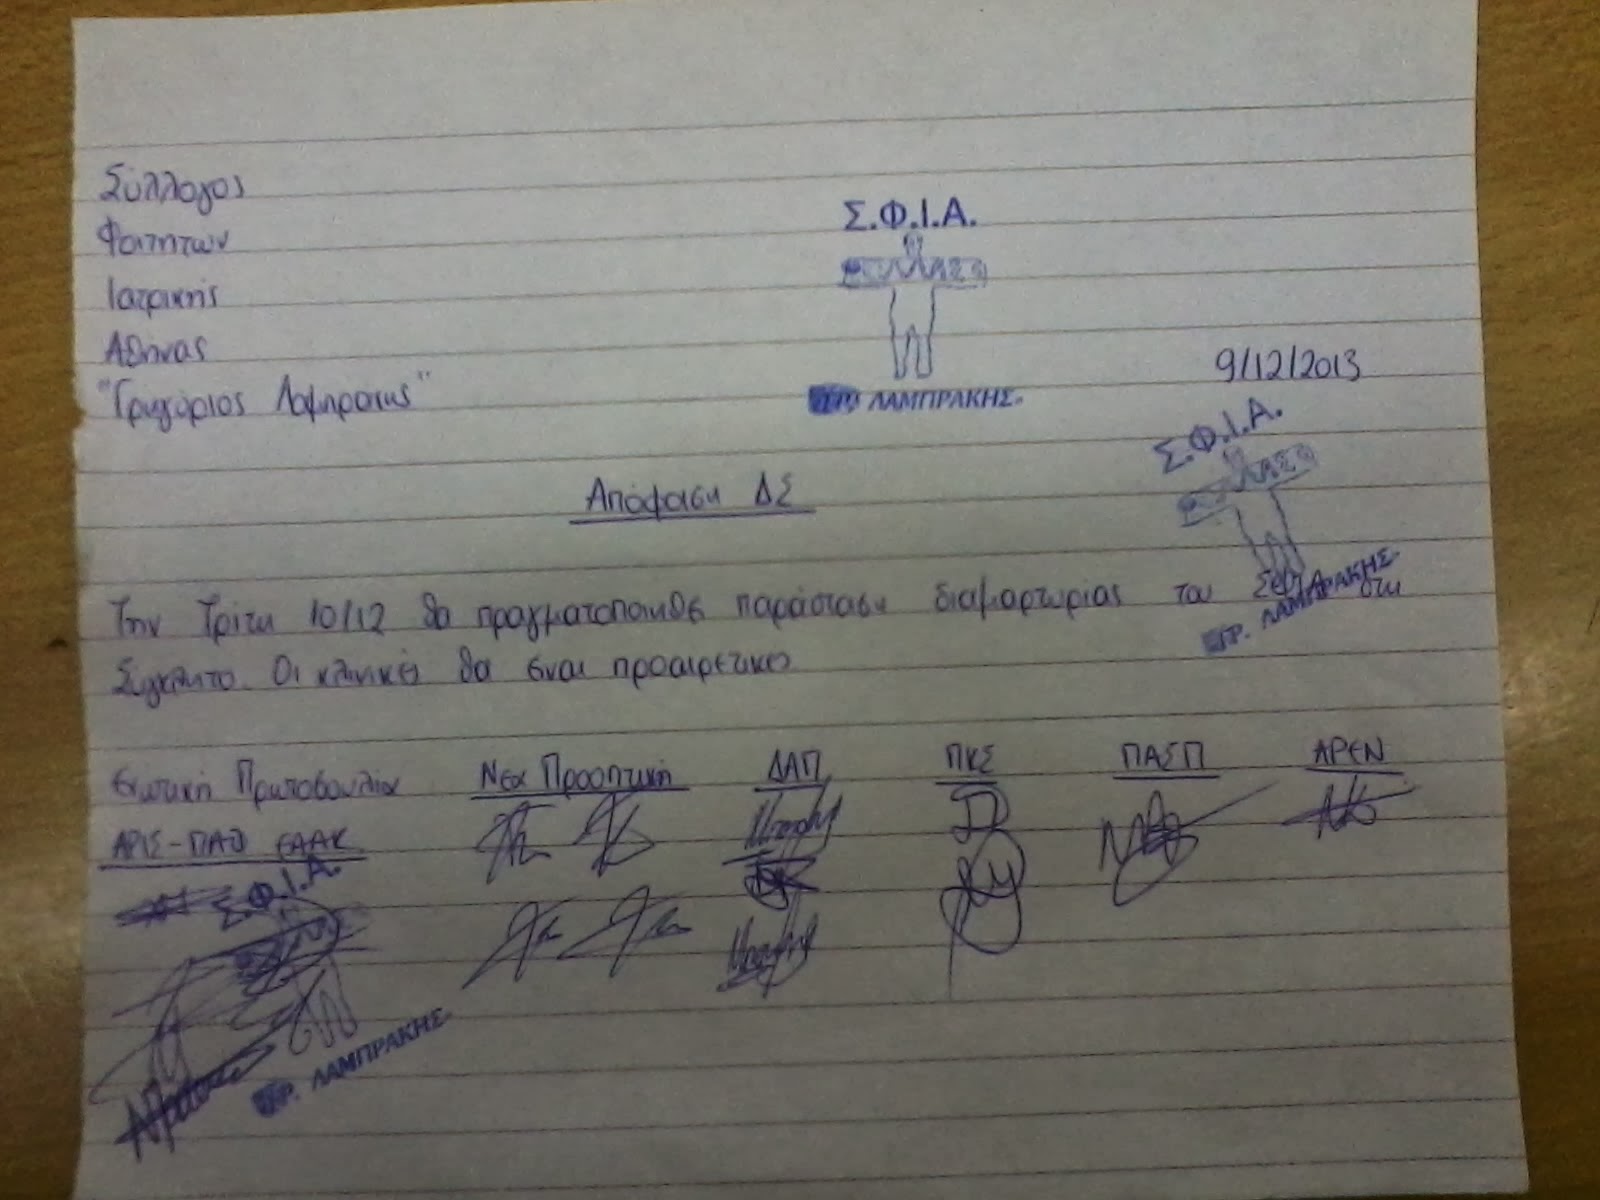 Σύλλογος
Φοιτητων
Ιατρικής
Αθηνας
"Γρηγόριος Λαμπράκης"
Σ.Φ.Ι.Α.
ΓΡ. ΛΑΜΠΡΑΚΗΣ
9/12/2013
Σ.Φ.Ι.Α.
ΓΡ. ΛΑΜΠΡΑΚΗΣ
Απόφαση ΔΣ
Την Τρίτη 10/12 θα πραγματοποιηθεί παράσταση διαμαρτυρίας του ΣΦΙΑ στη
Σύγκλητο. Οι κλινικές θα ειναι προαιρετικες
Ενωτική Πρωτοβουλία Νεα Προοπτική ΔΑΠ ΠΚΣ ΠΑΣΠ ΑΡΕΝ
ΑΡΙΣ-ΠΑΘ ΕΑΑΚ
Σ.Φ.Ι.Α.
ΓΡ. ΛΑΜΠΡΑΚΗΣ